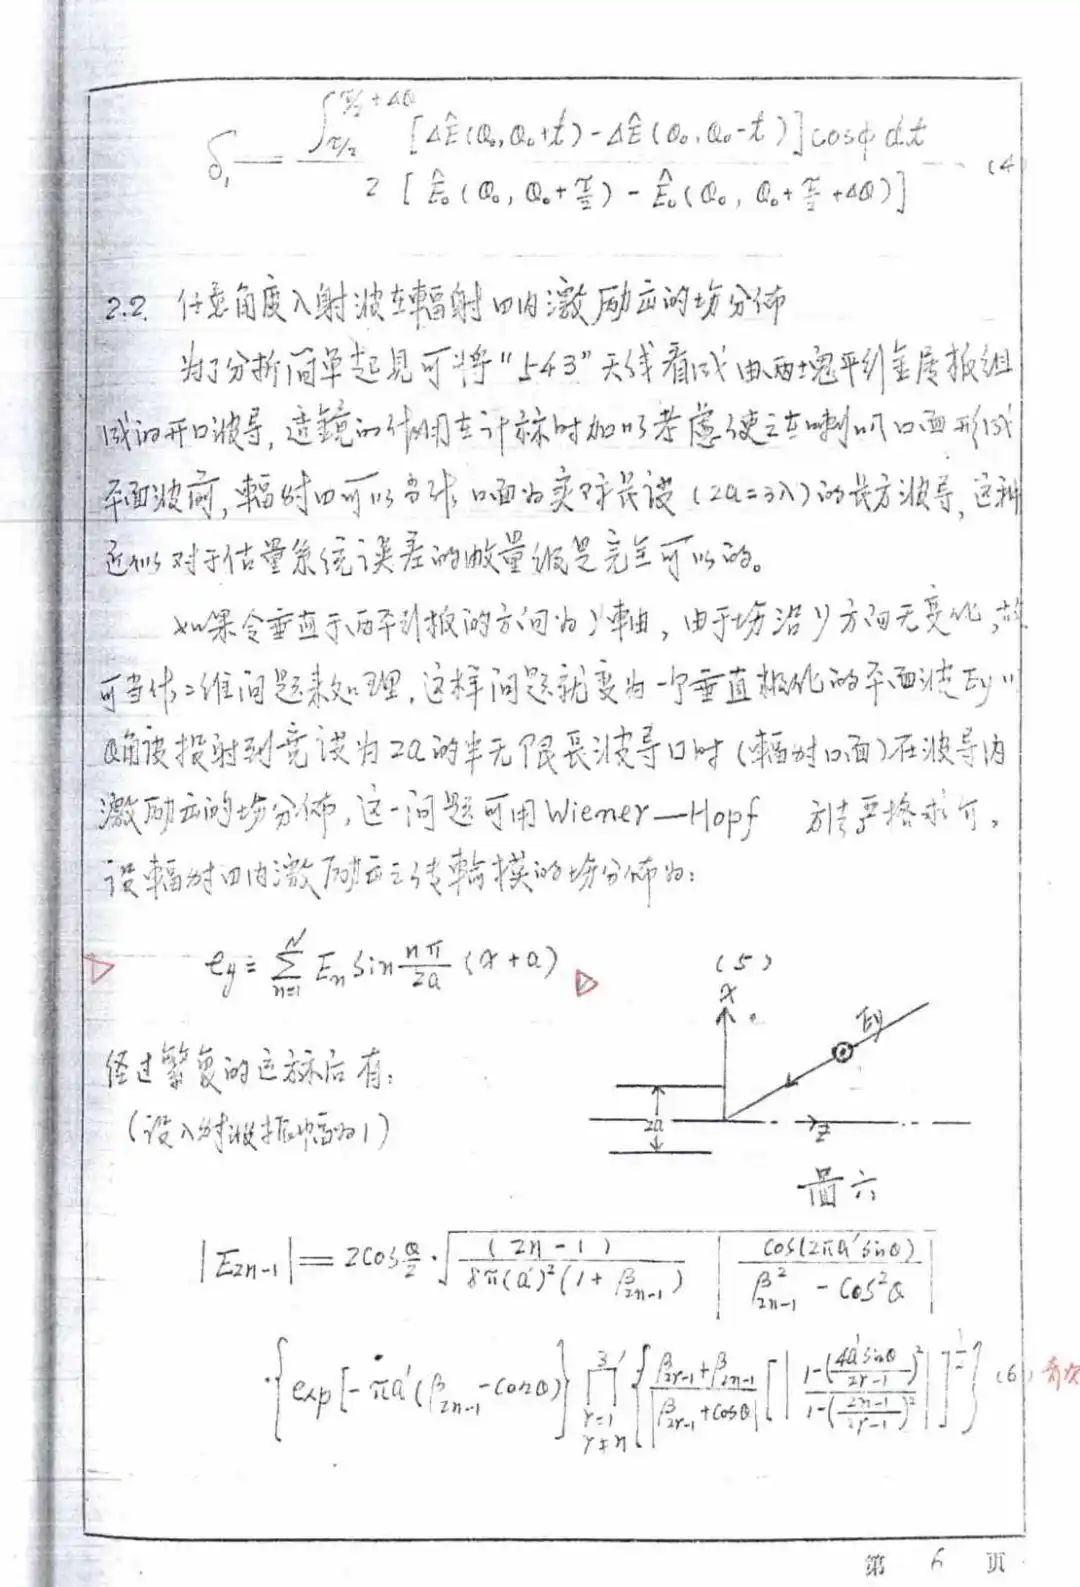 δ₁ = ∫_{π/2}^{π/2+Δθ} [ΔÊ(θ₀, θ₀+t) - ΔÊ(θ₀, θ₀-t)] cosφ dt / 2[Ê₀(θ₀, θ₀+π/2) - Ê₀(θ₀, θ₀+π/2+Δθ)] …(4
2.2. 任意角度入射波在辐射口内激励出的场分佈
为了分析简单起见可将"543"天线看成由两块平行金属板组
成的开口波导,透镜的作用在计算时加以考虑使之在喇叭口面形成
平面波前,辐射口可以当作口面为实际长度(2a=3λ)的长方波导,这种
近似对于估量系统误差的数量级是完全可以的。
如果令垂直于两平行板的方向为y轴,由于场沿y方向无变化,故
可当作二维问题来处理,这样问题就变为一个垂直极化的平面波Ey以
θ角度投射到宽度为2a的半无限长波导口时(辐射口面)在波导内
激励出的场分佈,这一问题可用Wiener—Hopf 方法严格求介。
设辐射口内激励出之传输模的场分佈为:
e_y = Σ_{n=1}^{N} E_n Sin nπ/2a (x+a) (5)
x
Ey
经过繁复的运算后有:
(设入射波振幅为1)
2a
z
图六
|E_{2n-1}| = 2cos θ/2 · √[(2n-1) / 8π(a')²(1+β_{2n-1})] |cos(2πa'sinθ) / (β²_{2n-1} - cos²θ)|
·{exp[-πa'(β_{2n-1} - cosθ)} ∏_{r=1, r≠n}^{3'} {(β_{2r-1}+β_{2n-1}) / |β_{2r-1}+cosθ| [|(1-(4a'sinθ/2r-1)²) / (1-(2n-1/2r-1)²)|]^{1/2}} (6)
第 6 页